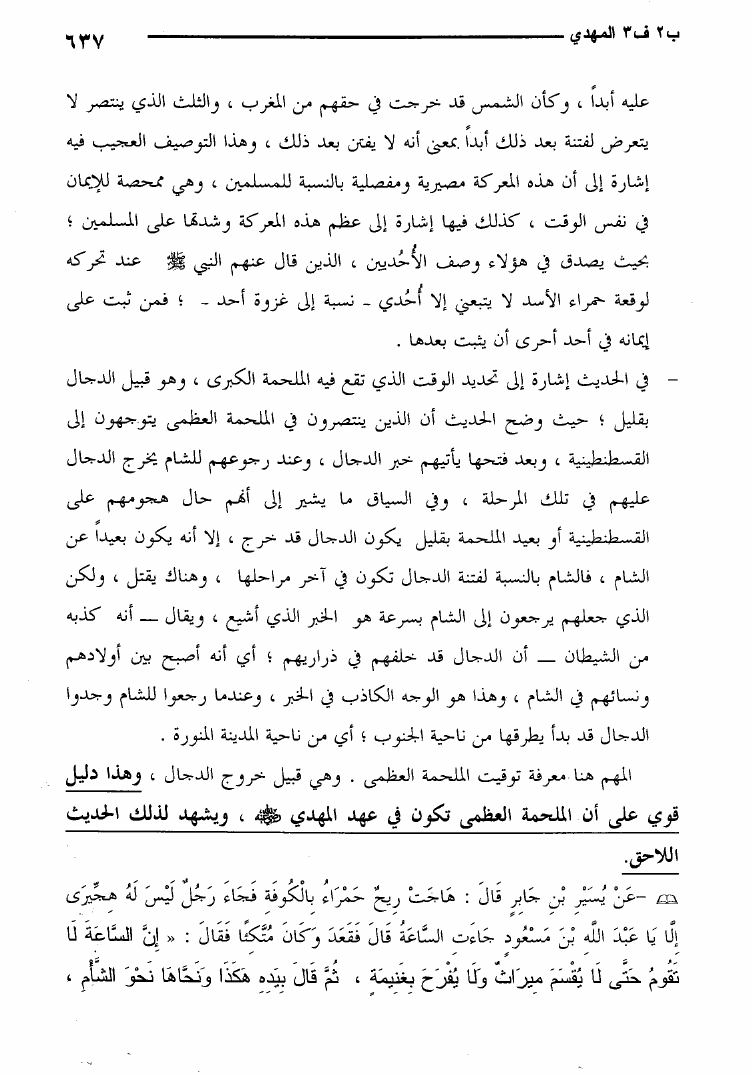 ب٢ ف٣ المهدي ٦٣٧
عليه أبداً ، وكأن الشمس قد خرجت في حقهم من المغرب ، والثلث الذي ينتصر لا
يتعرض لفتنة بعد ذلك أبداً بمعنى أنه لا يفتن بعد ذلك ، وهذا التوصيف العجيب فيه
إشارة إلى أن هذه المعركة مصيرية ومفصلية بالنسبة للمسلمين ، وهي ممحصة للإيمان
في نفس الوقت ، كذلك فيها إشارة إلى عظم هذه المعركة وشدتها على المسلمين ؛
بحيث يصدق في هؤلاء وصف الأُحُديين ، الذين قال عنهم النبي ﷺ عند تحركه
لوقعة حمراء الأسد لا يتبعني إلا أُحُدي - نسبة إلى غزوة أحد - ؛ فمن ثبت على
إيمانه في أحد أحرى أن يثبت بعدها .
- في الحديث إشارة إلى تحديد الوقت الذي تقع فيه الملحمة الكبرى ، وهو قبيل الدجال
بقليل ؛ حيث وضح الحديث أن الذين ينتصرون في الملحمة العظمى يتوجهون إلى
القسطنطينية ، وبعد فتحها يأتيهم خبر الدجال ، وعند رجوعهم للشام يخرج الدجال
عليهم في تلك المرحلة ، وفي السياق ما يشير إلى أنهم حال هجومهم على
القسطنطينية أو بعيد الملحمة بقليل يكون الدجال قد خرج ، إلا أنه يكون بعيداً عن
الشام ، فالشام بالنسبة لفتنة الدجال تكون في آخر مراحلها ، وهناك يقتل ، ولكن
الذي جعلهم يرجعون إلى الشام بسرعة هو الخبر الذي أشيع ، ويقال — أنه كذبه
من الشيطان — أن الدجال قد خلفهم في ذراريهم ؛ أي أنه أصبح بين أولادهم
ونسائهم في الشام ، وهذا هو الوجه الكاذب في الخبر ، وعندما رجعوا للشام وجدوا
الدجال قد بدأ يطرقها من ناحية الجنوب ؛ أي من ناحية المدينة المنورة .
المهم هنا معرفة توقيت الملحمة العظمى . وهي قبيل خروج الدجال ، وهذا دليل
قوي على أن الملحمة العظمى تكون في عهد المهدي ، ويشهد لذلك الحديث
اللاحق.
–عَنْ يُسَيْرِ بْنِ جَابِرٍ قَالَ : هَاجَتْ رِيحٌ حَمْرَاءُ بِالْكُوفَةِ فَجَاءَ رَجُلٌ لَيْسَ لَهُ هِجِّيرَى
إِلَّا يَا عَبْدَ اللَّهِ بْنَ مَسْعُودٍ جَاءَتِ السَّاعَةُ قَالَ فَقَعَدَ وَكَانَ مُتَّكِئًا فَقَالَ : « إِنَّ السَّاعَةَ لَا
تَقُومُ حَتَّى لَا يُقْسَمَ مِيرَاثٌ وَلَا يُفْرَحَ بِغَنِيمَةٍ ، ثُمَّ قَالَ بِيَدِهِ هَكَذَا وَنَحَّاهَا نَحْوَ الشَّأْمِ ،